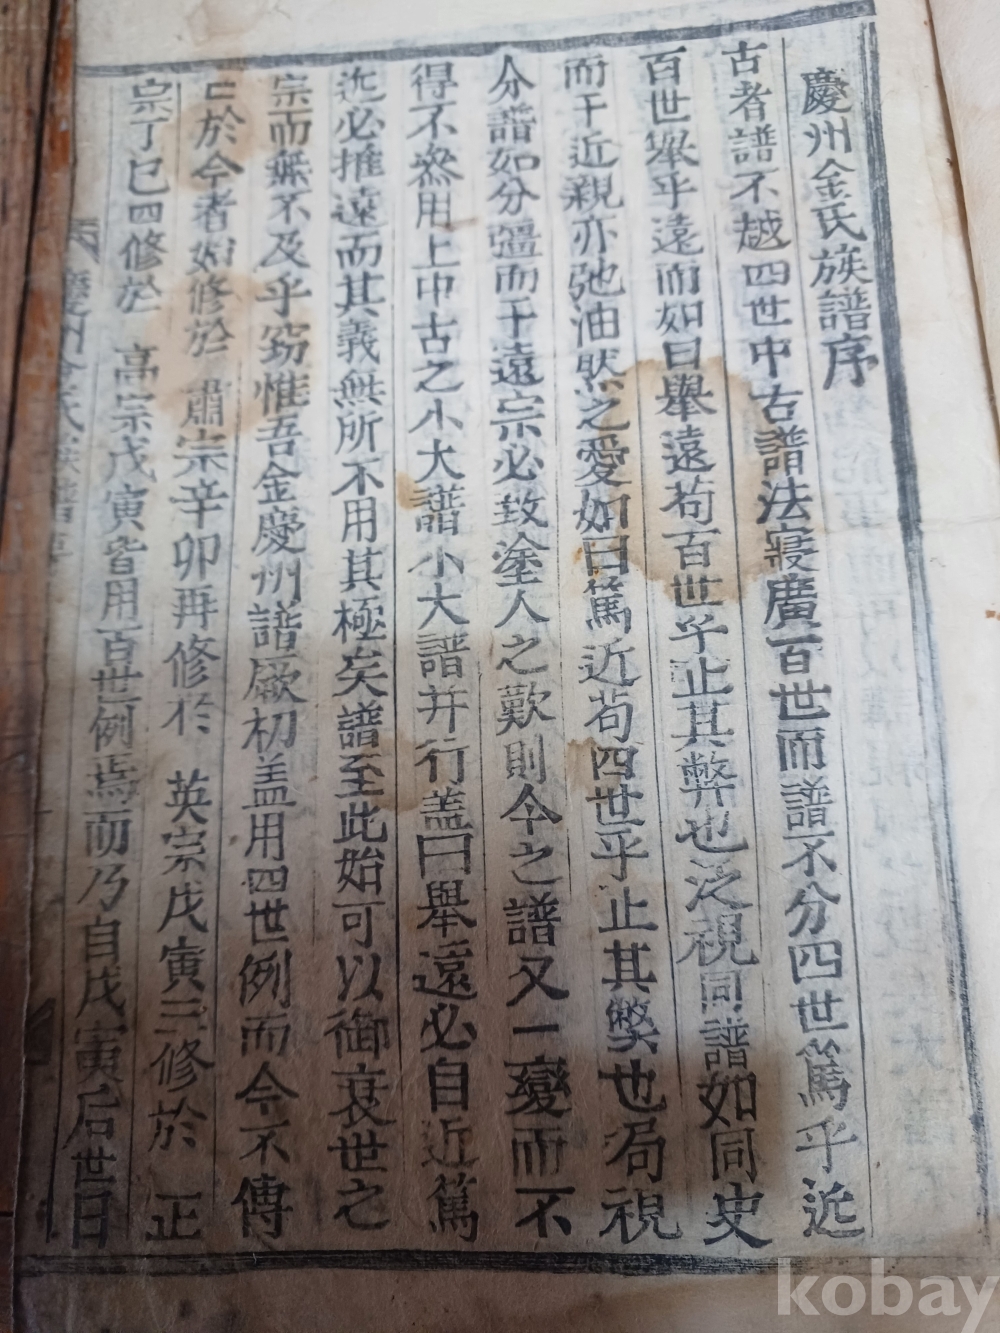 慶州金氏族譜序
古者譜不越四世中古譜法寖廣百世而譜不分四世篤乎近
百世擧乎遠而如曰擧遠苟百世乎止其弊也泛視同譜如同史
而于近親亦弛油然之愛如曰篤近苟四世乎止其獘也局視
分譜如分疆而于遠宗必致塗人之歎則今之譜又一變而不
得不叅用上中古之小大譜小大譜幷行盖曰擧遠必自近篤
近必推遠而其義無所不用其極矣譜至此始可以御衰世之
宗而無不及乎窃惟吾金慶州譜厥初盖用四世例而今不傳
亡於今者始修於 肅宗辛卯再修於 英宗戊寅三修於 正
宗丁巳四修於 高宗戊寅皆用百世例焉而乃自戊寅后世日
慶州金氏族譜序
kobay